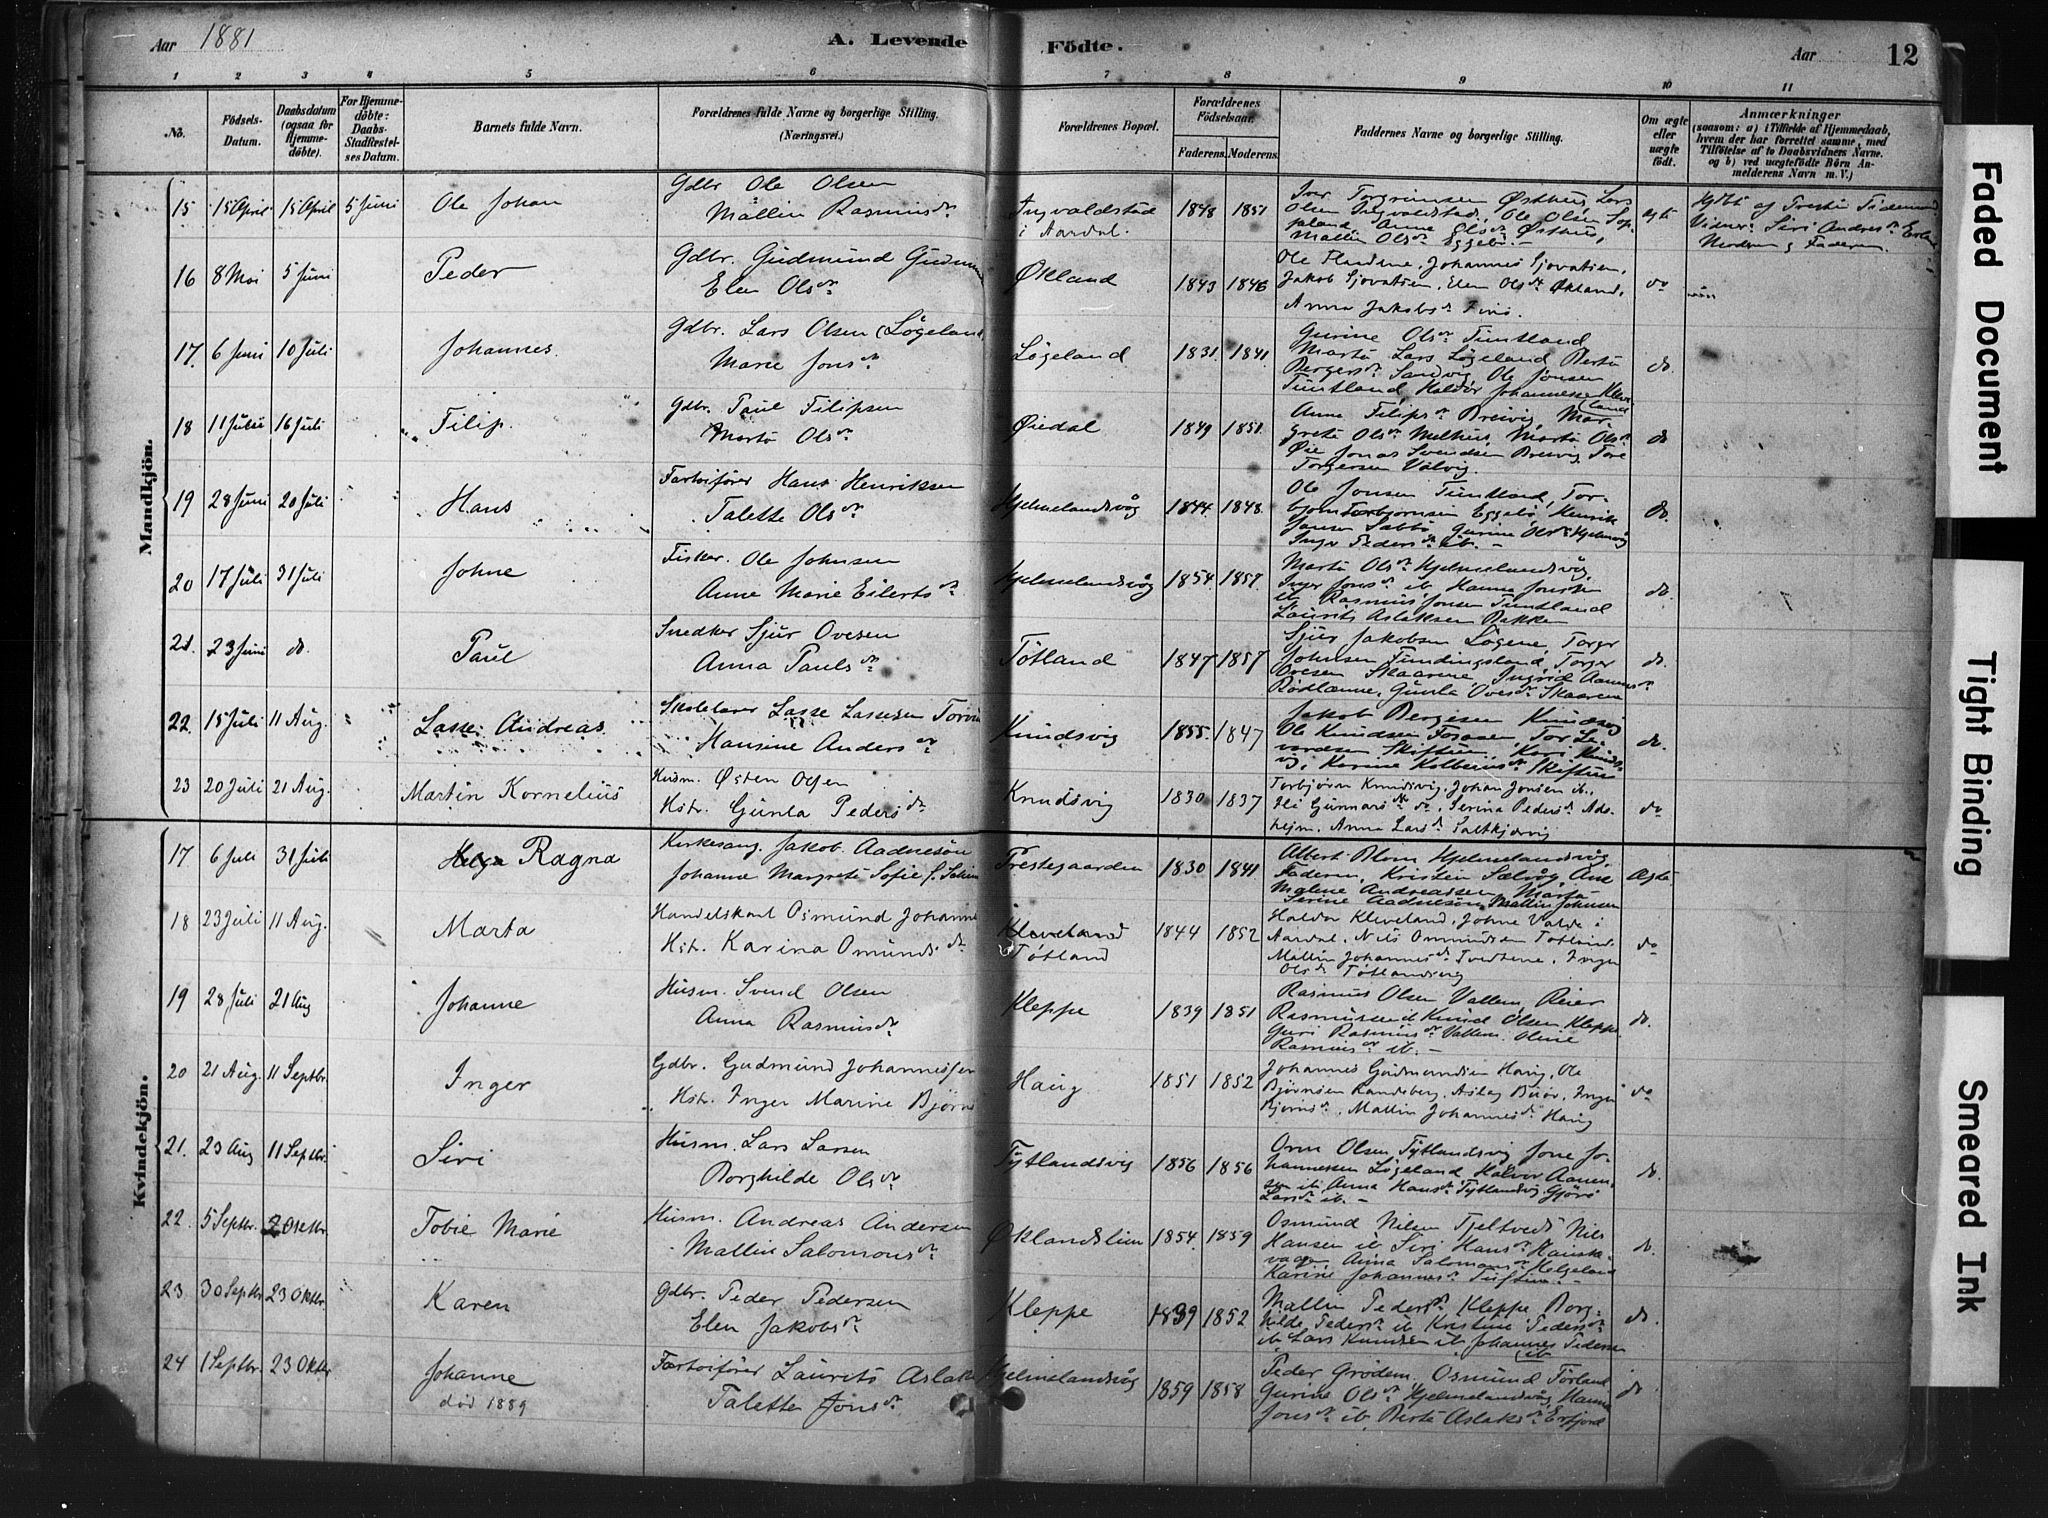 Aar 1881
A. Levende
Födte.
Aar
12
1 2 3 4 5 6 7 8 9 10 11
No.
Födsels-Datum.
Daabsdatum (ogsaa for Hjemme-döbte).
For Hjemme-döbte: Daabs-Stadfæstel-ses Datum.
Barnets fulde Navn.
Forældrenes fulde Navne og borgerlige Stilling. (Næringsvei.)
Forældrenes Bopæl.
Forældrenes Födselsaar.
Faderens. Moderens.
Faddernes Navne og borgerlige Stilling.
Om ægte eller uægte födt.
Anmærkninger
(saasom: a) i Tilfælde af Hjemmedaab,
hvem der har forrettet samme, med
Tilföielse af to Daabsvidners Navne.
og b) ved uægtefödte Börn An-
melderens Navn m. V.)
Mandkjön.
15 15 April 15 April 5 Juni Ole Johan
Gdbr Ole Olsen
Mallin Rasmusdr
Ingvaldstad
i Aardal.
1848 1851
Iver Torgrimsen Østhus, Lars
Olsen Ingvaldstad, Ole Olsen
Anne Olsdr Østhus,
Mallin Olsdr Eggebö.
ægte
16 8 Mai 5 Juni Peder
Gdbr. Gudmund
Elen Olsdr
Økland 1843 1846
Jakob Gjovatsen, Elen Olsdr Økland,
Anna Jakobsdr
do
17. 6 Juni 10 Juli Johannes.
Gdbr. Lars Olsen (Løgeland
Marie Jonsdr
Løgeland 1831. 1841.
Gurine Olsdr Tuntland
Marta Lars Løgeland Berta
Bergersdr Sandvig Ole Jonsen
Tuntland Haldor Johannessen Kleve-
land
do.
18 11 Juni 16 Juli Filip.
Gdbr. Paul Filipsen
Marta Olsdr
Øiedal 1849 1851.
Anna Filipsdr Breivig, Mar-
greta Olsdr Melhus, Marta Olsdr
Øie Jonas Svendsen Breivig, Tore
Torgersen Valvig.
do
19 28 Juni 20 Juli Hans
Fartöifører Hans Henriksen
Talette Olsdr
Hjelmelandsvåg 1844. 1848.
Ole Jonsen Tuntland, Tor-
bjorn Torbjørnsen Eggebö, Henrik
Jansen Sæbbö Gurine Olsdr
Inger Pedersdr ib. –
do.
20 17 Juli 31 Juli Johne
Fisker. Ole Johnsen
Anne Marie Eilertsdr
Hjelmelandsvåg 1854. 1857.
Marta Olsdr Hjelmelandsvåg,
Inger Jonsdr ib Hanna
ib Rasmus Jonsen Tuntland
Laurits Aslaksen Bakken
do.
21. 23 Juni do. Paul
Snedker Sjur Ovesen
Anna Paulsdr
Tötland 1847 1857
Sjur Jakobsen Løgene, Torger
Johnsen Fundingsland, Torger
Ovesen Skaarene, Ingrid
Gunla Ovesdr Skaarene
do.
22. 15 Juli 11 Aug. Lasse Andreas.
Skolelærer Lasse Lassesen
Hansine Andersdr
Knudsvig 1855. 1847
Jakob Bergesen Knudsvig
Ole Knudsen Fosaaen, Tor
Karine Kolbeinsdr Skiftun
do.
23 20 Juli 21 Aug. Martin Kornelius
Husm. Østen Olsen
Hstr. Gunla Pedersdr
Knudsvig 1830 1837
Torbjörn Knudsvig, Johan Jonsen ib.,
Gunnarsdr do, Serina Pedersdr
Anna Larsdr
do
Kvindekjön.
17 6 Juli 31 Juli Helga Ragna
Kirkesang. Jakob Aadnesön
Johanne Margrete Sofie f.
Prestegaarden 1830 1841
Albert Blom Hjelmelandsvåg,
Faderen, Kristen
Malene Andreassen, Marta
Serine Aadnesön, Mallin Johnsen
Ægte
18 23 Juli 11 Aug. Marta
Handelskarl Osmund
Hstr. Karina Omundsdr
Kleveland
Tötland
1844 1852
Haldor Kleveland, Johne Valde i
Aardal, Nils Ommundsen Tötland
Mallin Johannesdr Tvedtene, Inger
Olsdr Tötlandsvig
do
19 28 Juli 21 Aug Johanne
Husm. Svend Olsen
Anna Rasmusdr
Kleppe 1839 1851
Rasmus Olsen Vallem, Reier
Rasmussen Knud Olsen Kleppe
Guri Rasmusdr Vallem. Oline
Rasmusdr ib. –
do.
20 21 Aug. 11 Septbr. Inger
Gdbr. Gudmund Johannessen
Hstr. Inger Marine
Haug 1851 1852
Johannes Gudmundsen Haug, Ole
Björnsen Randeberg, Aslag Buør, Inger
Björnsdr, Mallin Johannesdr Haug
do
21. 23 Aug 11 Septbr. Siri
Husm. Lars Larsen
Borghilde Olsdr
Tytlandsvig 1856 1856
Orm Olsen Tytlandsvig Jone Jo-
hannessen Løgeland Halvor Aamun-
sen ib. Anna Hansdr Tytlandsvig Gjöra
Larsdr ib. –
do.
22. 5 Septbr. 2 Octbr. Tobie Marie
Husm. Andreas Andersen
Mallin Salomonsdr
Øklandslien 1854. 1859
Osmund Nilsen Tjeltveds Nils
Hansen ib Siri Hansdr
Anna Salomonsdr Helgeland
Karine Johannesdr Tuftene. –
do.
23 30 Septbr 23 Oktbr. Karen
Gdbr. Peder Pedersen
Elen Jakobsdr
Kleppe 1839 1852
Mallin Pedersdr Kleppe Borg-
hilde Pedersdr ib Kristine Pedersdr
ib Lars Knudsen ib Johannes Pedersen
ib
do.
24 1 Septbr. 23 Oktbr Johanne
död 1889
Fartöifører Laurits
Talette Jonsdr
Hjelmelandsvåg 1859 1858
Peder Grödem, Osmund Förland
Gurine Olsdr Hjelmelandsvåg, Hanna
Jonsdr ib Berta Aslaksdr Erfjord
do
Faded Document
Tight Binding
Smeared Ink